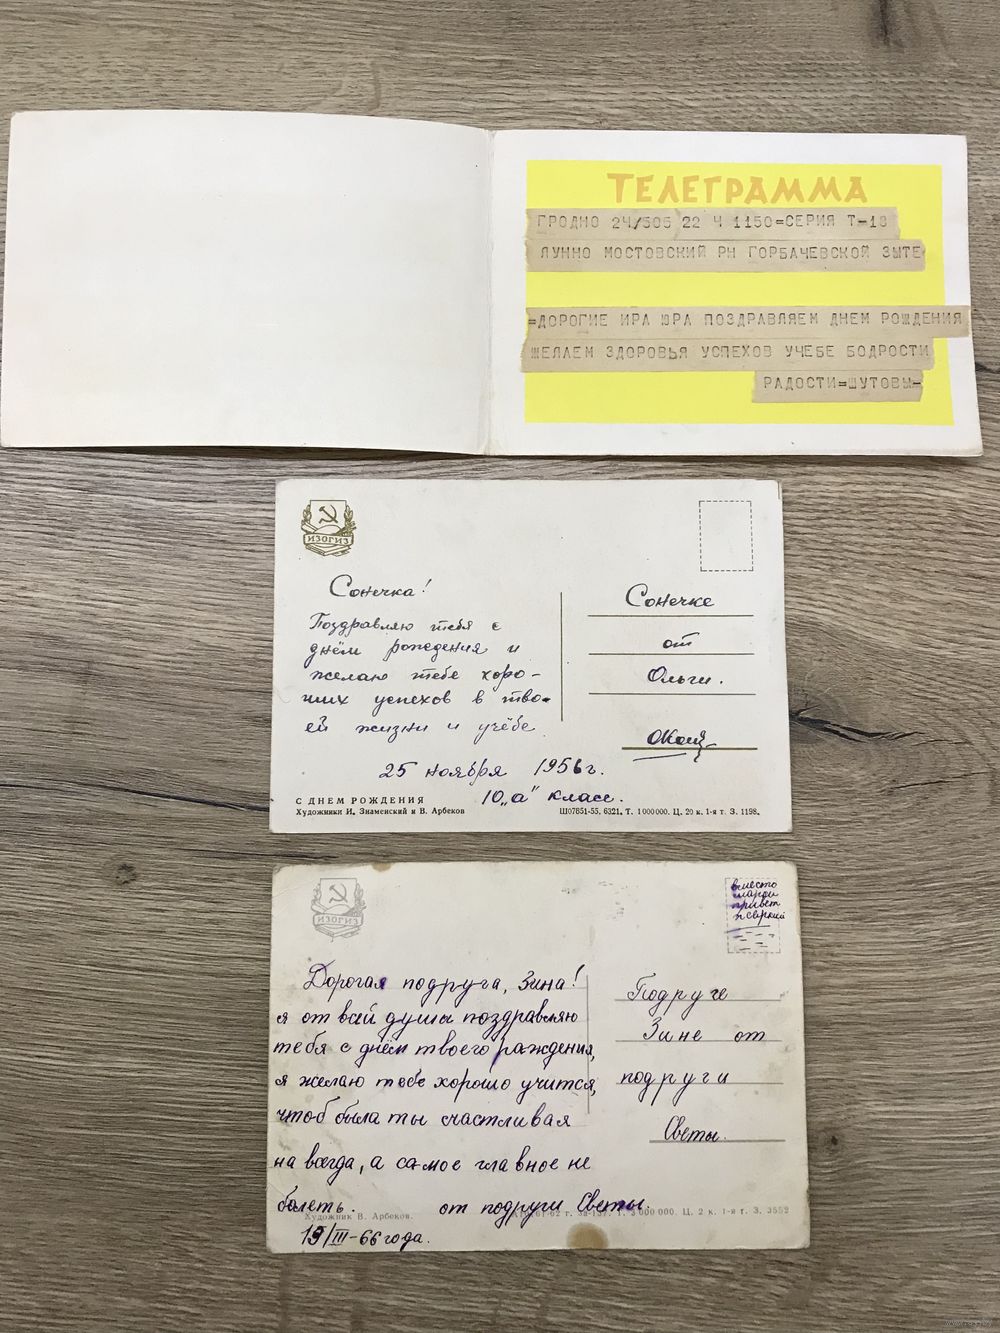 ТЕЛЕГРАММА
ГРОДНО 24/505 22 Ч 1150=СЕРИЯ Т-18
ЛУННО МОСТОВСКИЙ РН ГОРБАЧЕВСКОЙ ЗЫТЕ
=ДОРОГИЕ ИРА ЮРА ПОЗДРАВЛЯЕМ ДНЕМ РОЖДЕНИЯ
ЖЕЛАЕМ ЗДОРОВЬЯ УСПЕХОВ УЧЕБЕ БОДРОСТИ
РАДОСТИ=ШУТОВЫ-
ИЗОГИЗ
Сонечка!
Поздравляю тебя с
днём рождения и
желаю тебе хоро-
ших успехов в тво-
ей жизни и учёбе.
25 ноября 1956 г.
10 „а" класс.
Сонечке
от
Ольги.
С ДНЕМ РОЖДЕНИЯ
Художники И. Знаменский и В. Арбеков
Ш07851-55, 6321. Т. 1 000 000. Ц. 20 к. 1-я т. З. 1198.
ИЗОГИЗ
вместо
марки
привет
жаркий
Дорогая подруга, Зина!
я от всей душа поздравляю
тебя с днём твоего раждения,
я желаю тебе хорошо учится,
чтоб была ты счастливая
на всегда, а самое главное не
болеть. от подруги Светы.
19/III-66 года.
Подруге
Зине от
подруги
Светы.
Художник В. Арбеков.
Т. 3 000 000. Ц. 2 к. 1-я т. З. 3552